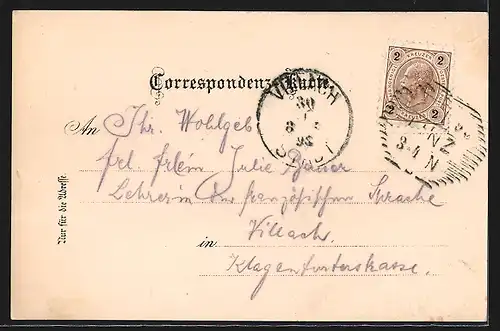 Correspondenz-Karte.
2 KREUZER 2
2 2
VILLACH
30
8
98
STADT
LINZ
3-4 N
An Ihr. Wohlgeb
frl. Julie
Lehrerin der französischen Sprache
Villach.
in
Klagenfurterstrasse.
Nur für die Adresse.